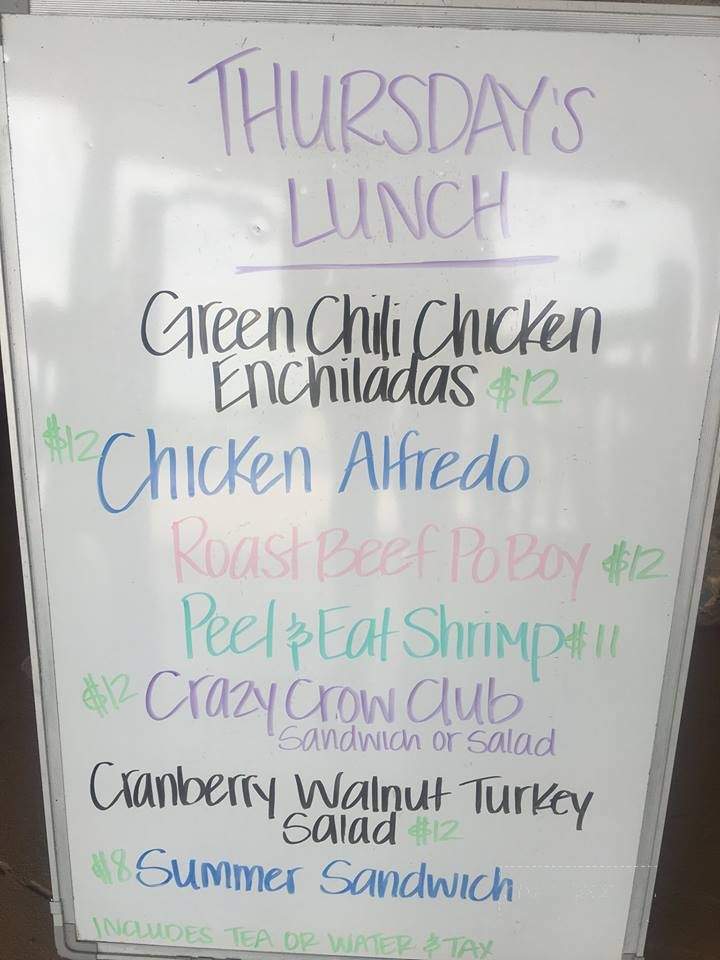 THURSDAY'S
LUNCH
Green Chili Chicken
Enchiladas $12
$12 Chicken Alfredo
Roast Beef Po Boy $12
Peel & Eat Shrimp $11
$12 Crazy Crow Club
Sandwich or Salad
Cranberry Walnut Turkey
Salad $12
$8 Summer Sandwich
INCLUDES TEA OR WATER & TAX